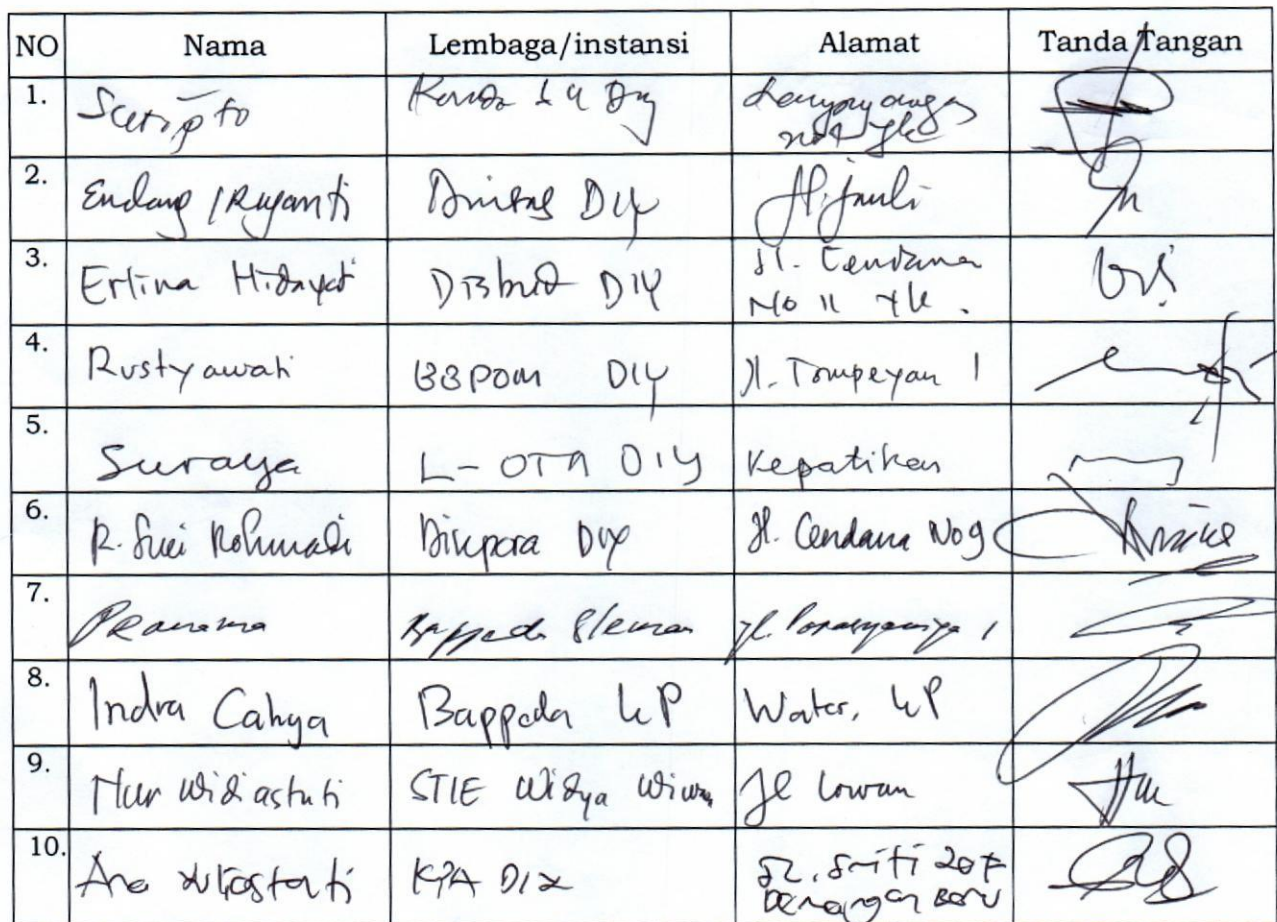 NO Nama Lembaga/instansi Alamat Tanda Tangan
1. Sucipto
2. Endang Iriyanti DIY
3. Erlina Hidayati Disbud DIY Jl. Cendana
No 11 Yk.
4. Rustyawati BBPOM DIY Jl. Tompeyan 1
5. Suraya L-OTA DIY Kepatihan
6. R. Suci Rohmadi Dikpora DIY Jl. Cendana No 9
7. Bappeda Sleman Jl. Parasamya 1
8. Indra Cahya Bappeda KP Wates, KP
9. Nur Widiastuti STIE Widya Wiwaha Jl Lowanu
10. Ana KPA DIY Jl. Sriti 20
Demangan Baru